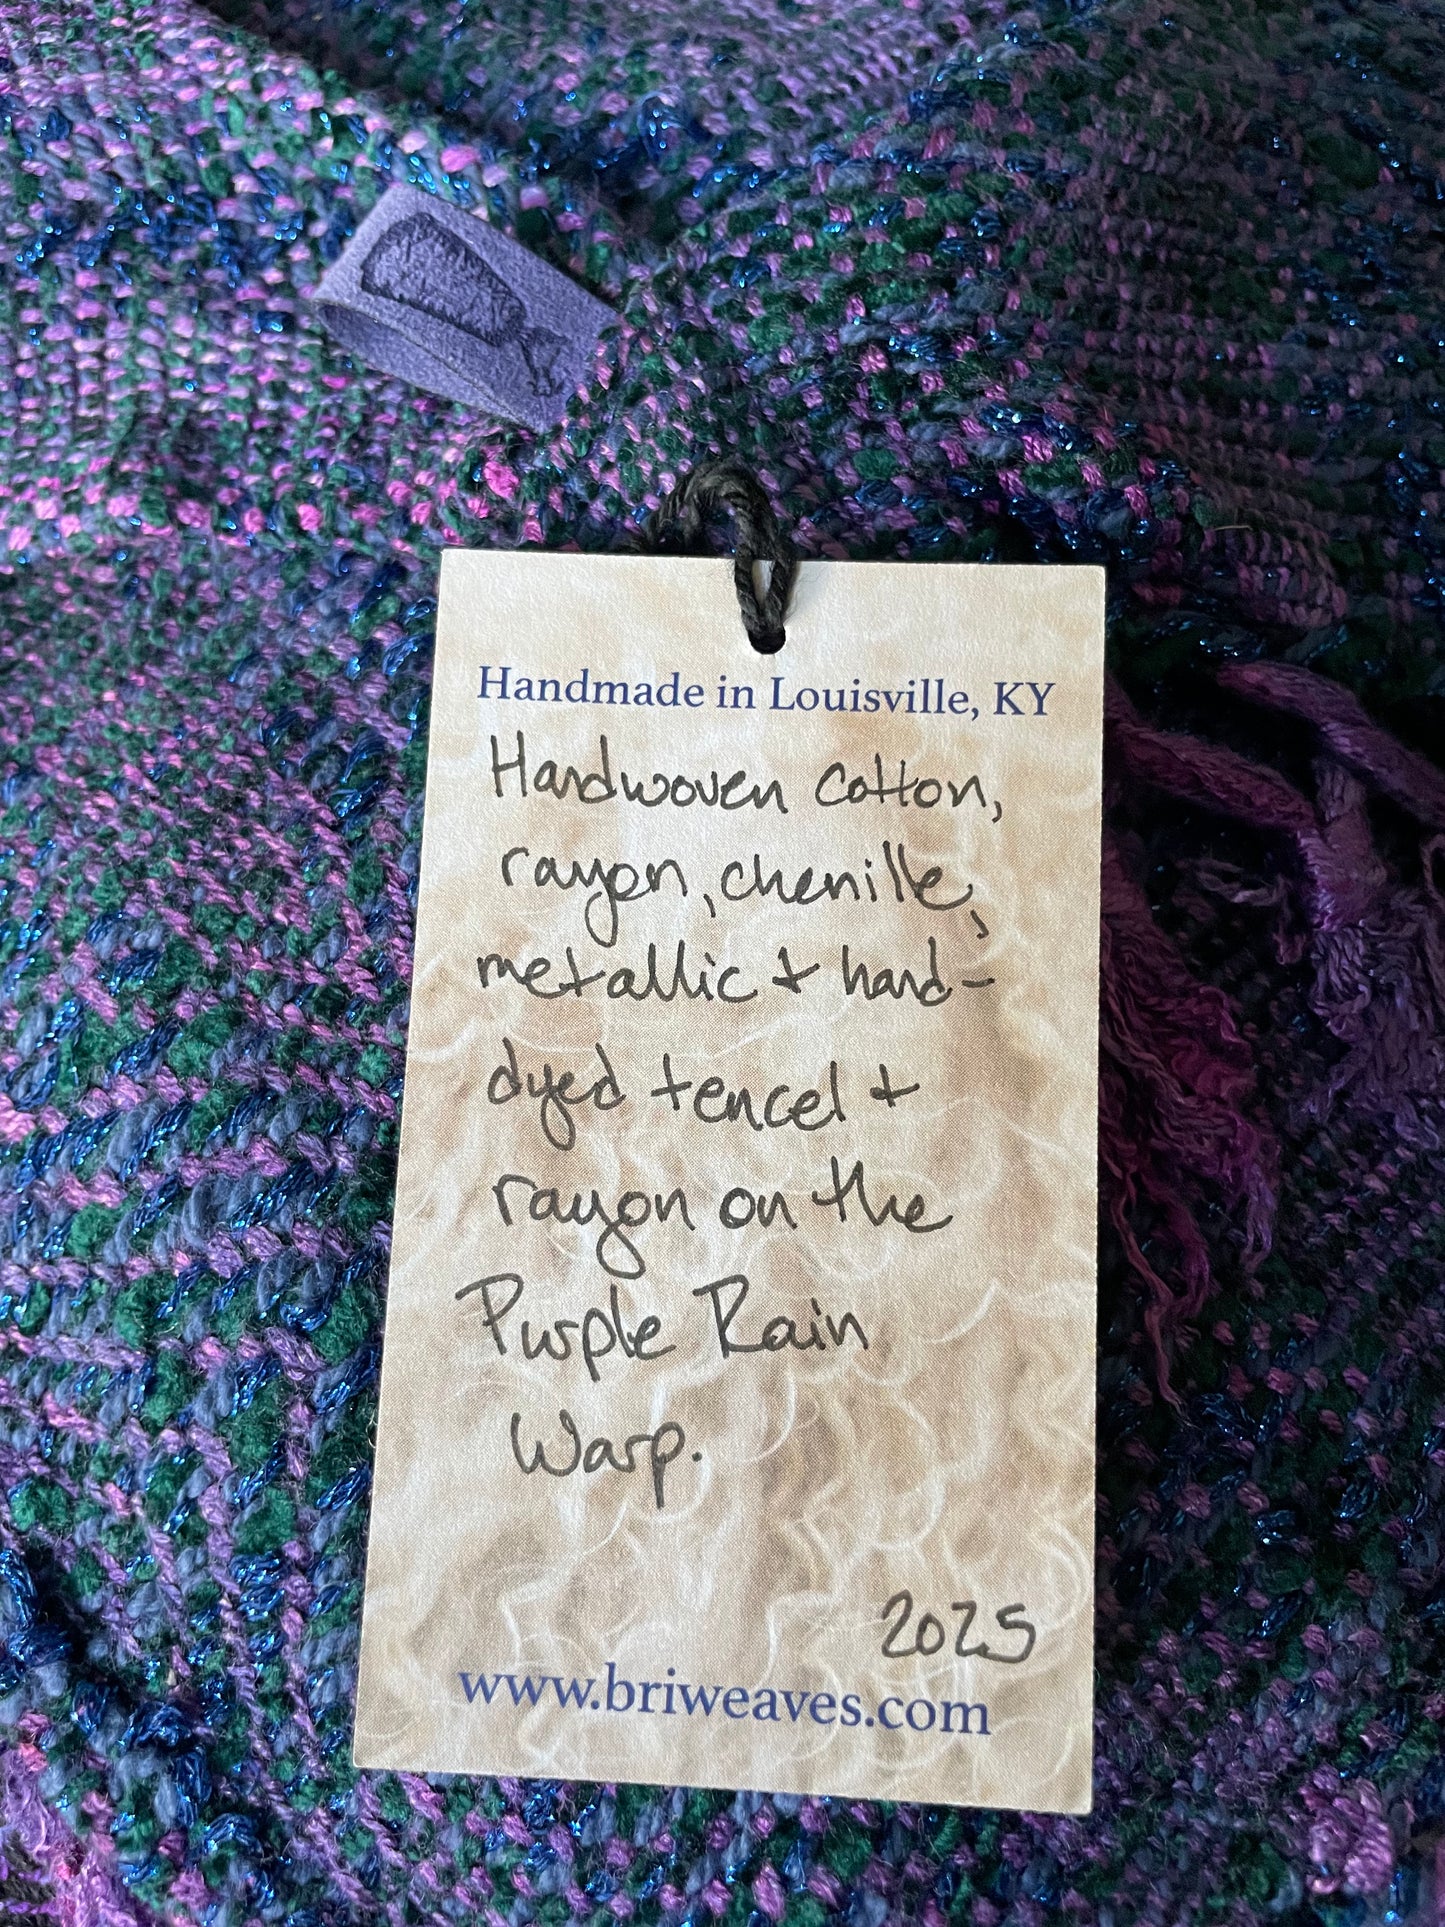 Handmade in Louisville, KY
Handwoven cotton,
rayon, chenille,
metallic + hand-
dyed tencel +
rayon on the
Purple Rain
Warp.
2025
www.briweaves.com